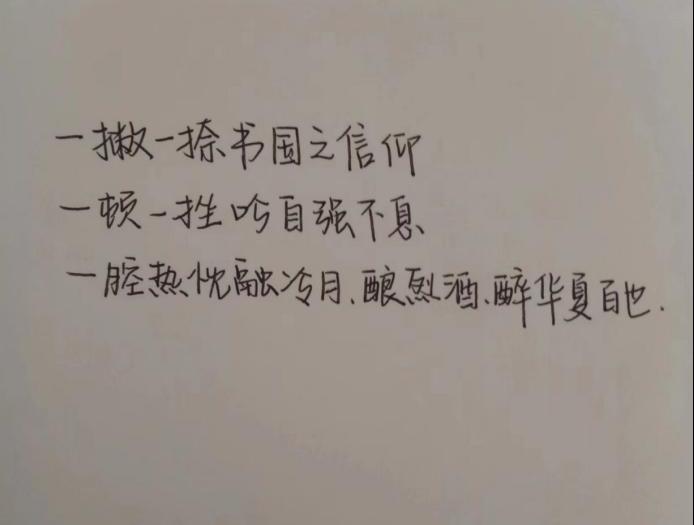 一撇一捺书国之信仰
一顿一挫吟自强不息
一腔热忱融冷月、酿烈酒、醉华夏百世.